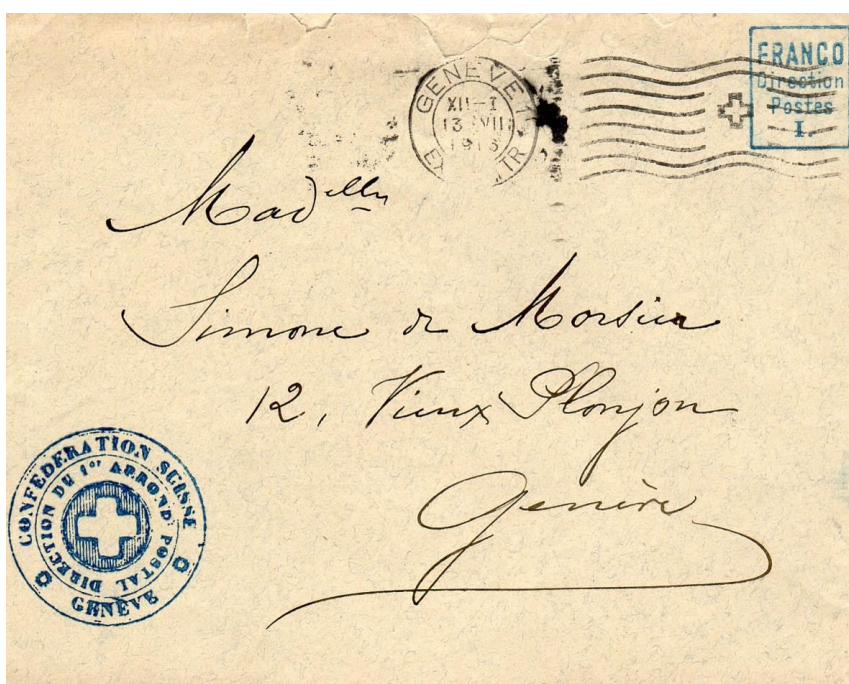 GENÈVE 1
XII-I
13 VII
1916
FRANCO
Direction
Postes
I.
Mad<sup>elle</sup>
Simone de Morsier
12, Vieux Plonjon
Genève
CONFÉDÉRATION SUISSE
DIRECTION DU 1<sup>er</sup> ARROND<sup>t</sup> POSTAL
GENÈVE